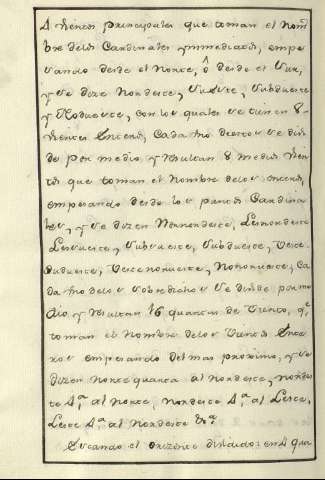 4 vientos principales que toman el nom̃
bre delos Cardinales ymmediatos, empe
zando desde el Norte, ô desde el Sur,
y se dize Nordeste, Sueste, Sudueste
y Norueste, con los quales se tienen 8
vientos Enteros, Cada Uno destos se divi
de por medio, y resultan 8 medios vien
tos que toman el Nombre delos enteros,
empezando desde los puntos Cardina
les, y se dizen Nornordeste, Lesnordeste
Lessueste, Susueste, Susudueste, Oeste
sudueste, Oestenorueste, y Nornorueste, Ca
da Uno delos sobredichos se divide por me
dio, y resultan 16 quartas de Viento, q.e
toman el Nombre delos Vientos Ente
ros empezando del mas proximo, y se
dizen Norte quarta al Nordeste, Nordes
te 4.a al Norte, Nordeste 4.a al Leste,
Leste 4.a al Nordeste &.a
Tocando el orizonte dividido en 4 qua